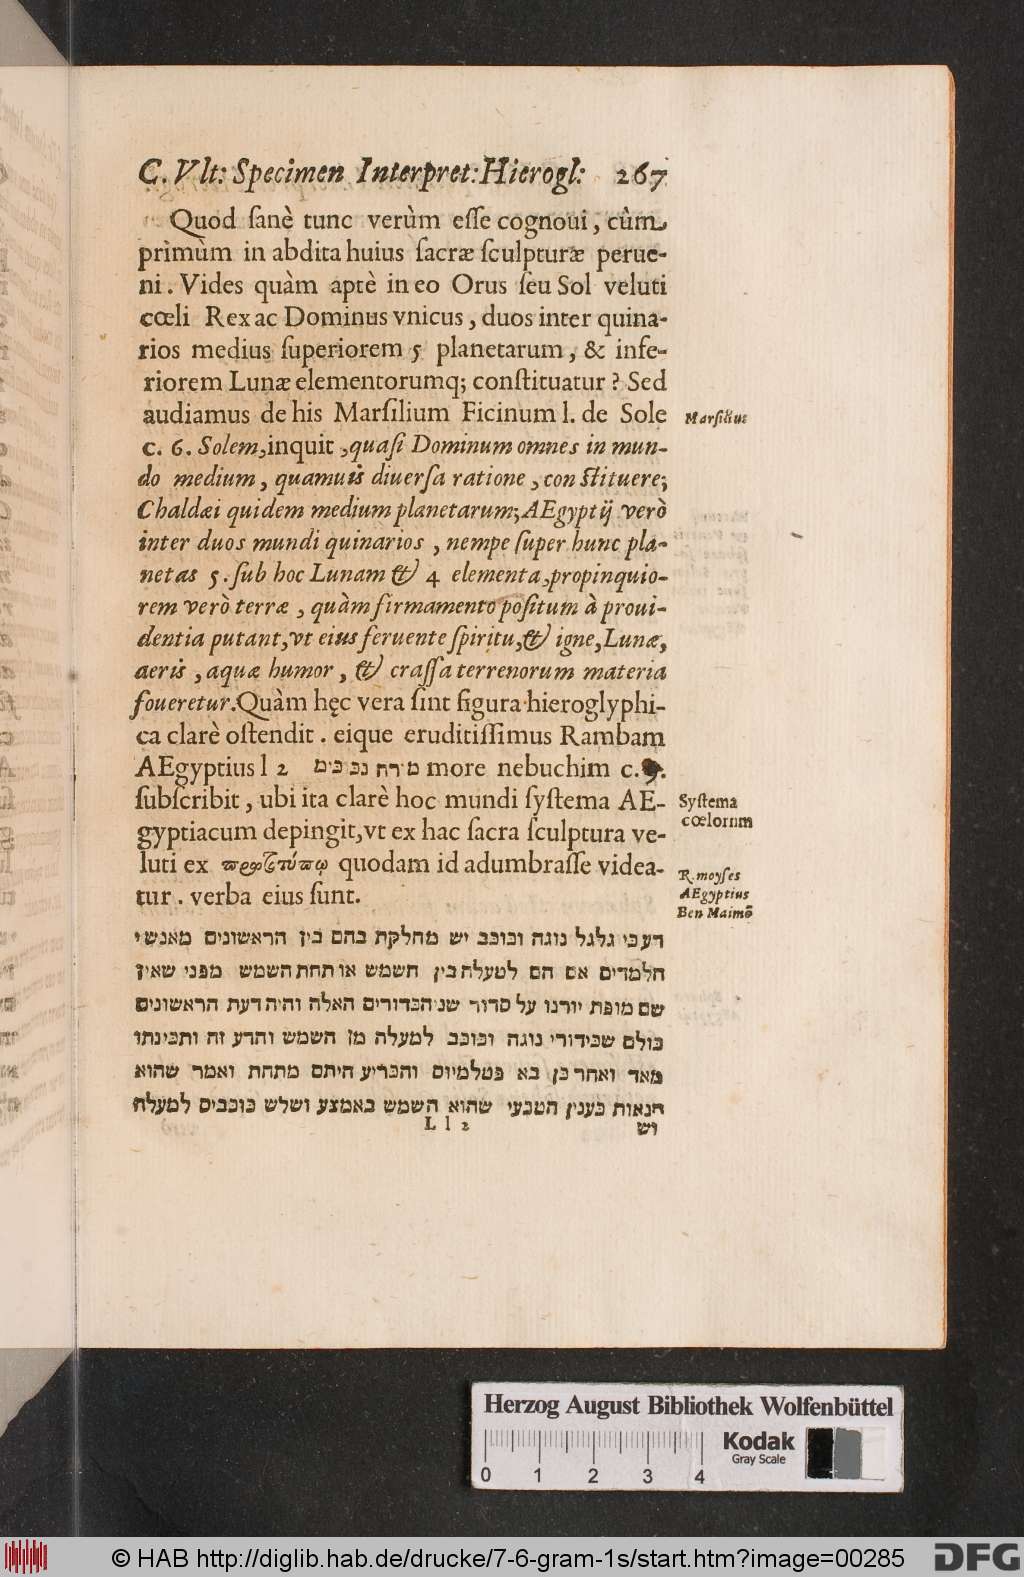 C. Vlt: Specimen Interpret: Hierogl: 267
Quod sanè tunc verùm esse cognoui, cùm
prìmùm in abdita huius sacræ sculpturæ perue-
ni. Vides quàm aptè in eo Orus seu Sol veluti
cœli Rex ac Dominus vnicus, duos inter quina-
rios medius superiorem 5 planetarum, & infe-
riorem Lunæ elementorumq; constituatur? Sed
audiamus de his Marsilium Ficinum l. de Sole
Marsilius
c. 6. Solem, inquit, quasi Dominum omnes in mun-
do medium, quamuis diuersa ratione, constituere;
Chaldæi quidem medium planetarum; AEgyptij verò
inter duos mundi quinarios, nempe super hunc pla-
netas 5. sub hoc Lunam & 4 elementa, propinquio-
rem verò terræ, quàm firmamento positum à proui-
dentia putant, vt eius feruente spiritu, & igne, Lunæ,
aeris, aquæ humor, & crassa terrenorum materia
foueretur. Quàm hęc vera sint figura hieroglyphi-
ca clarè ostendit. eique eruditissimus Rambam
AEgyptius l 2 מורה נבכים more nebuchim c. 9.
subscribit, ubi ita clarè hoc mundi systema AE-
Systema
cœlorum
gyptiacum depingit, vt ex hac sacra sculptura ve-
luti ex πρωτοτύπῳ quodam id adumbrasse videa-
R. moyses
AEgyptius
Ben Maimō
tur. verba eius sunt.
דע כי גלגל נוגה וכוכב יש מחלקת בהם בין הראשונים מאנשי
הלמדים אם הם למעלה בין השמש או תחת השמש מפני שאין
שם מופת יורנו על סדור שני הכדורים האלה והיה דעת הראשונים
כולם שכידורי נוגה וכוכב למעלה מן השמש והדע זה ותבינתו
מאד ואחר כן בא בטלמיוס והכריע היתם מתחת ואמר שהוא
הנאות בענין הטבעי שהוא השמש באמצע ושלש כוכבים למעלה
L l 2
וש
Herzog August Bibliothek Wolfenbüttel
Kodak
Gray Scale
0 1 2 3 4
© HAB http://diglib.hab.de/drucke/7-6-gram-1s/start.htm?image=00285
DFG